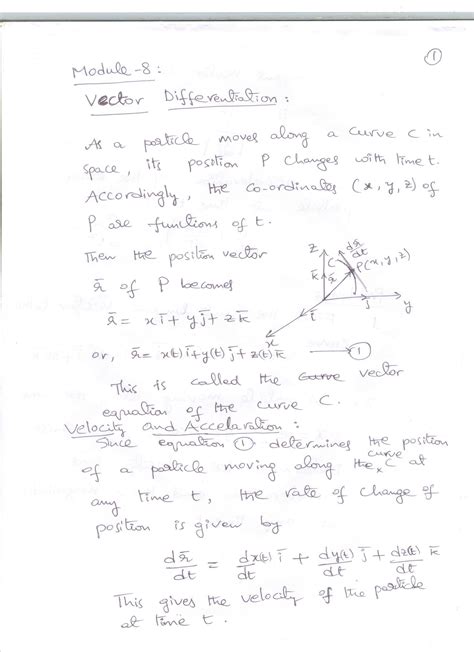 ①
Module-8:
Vector Differentiation:
As a particle moves along a curve C in
space, its position P changes with time t.
Accordingly, the co-ordinates (x, y, z) of
P are functions of t.
Then the position vector
r̄ of P becomes
r̄ = x ī + y j̄ + z k̄
or, r̄ = x(t) ī + y(t) j̄ + z(t) k̄ → ①
z
C
dr̄/dt
P(x, y, z)
k̄
r̄
ī
j̄
y
x
This is called the curve vector
equation of the curve C.
Velocity and Accelaration:
Since equation ① determines the position
of a particle moving along the curve C at
any time t, the rate of change of
position is given by
dr̄/dt = dx(t)/dt ī + dy(t)/dt j̄ + dz(t)/dt k̄
This gives the velocity of the particle
at time t.